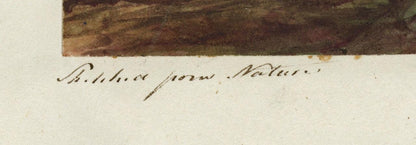 Sketched from Nature.